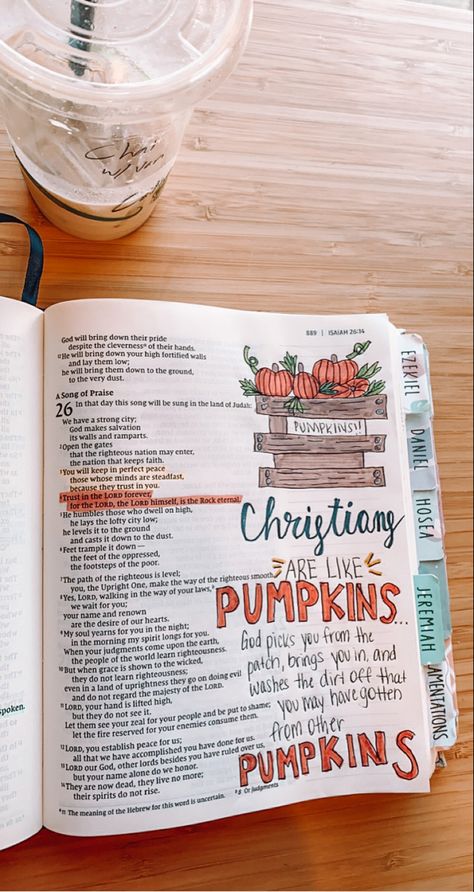 Chai
w/ van
889 | ISAIAH 26:14
God will bring down their pride
despite the clevernessᵃ of their hands.
¹²He will bring down your high fortified walls
and lay them low;
he will bring them down to the ground,
to the very dust.
A Song of Praise
26 In that day this song will be sung in the land of Judah:
We have a strong city;
God makes salvation
its walls and ramparts.
²Open the gates
that the righteous nation may enter,
the nation that keeps faith.
³You will keep in perfect peace
those whose minds are steadfast,
because they trust in you.
⁴Trust in the LORD forever,
for the LORD, the LORD himself, is the Rock eternal.
⁵He humbles those who dwell on high,
he lays the lofty city low;
he levels it to the ground
and casts it down to the dust.
⁶Feet trample it down—
the feet of the oppressed,
the footsteps of the poor.
⁷The path of the righteous is level;
you, the Upright One, make the way of the righteous smooth.
⁸Yes, LORD, walking in the way of your laws,ᵇ
we wait for you;
your name and renown
are the desire of our hearts.
⁹My soul yearns for you in the night;
in the morning my spirit longs for you.
When your judgments come upon the earth,
the people of the world learn righteousness.
¹⁰But when grace is shown to the wicked,
they do not learn righteousness;
even in a land of uprightness they go on doing evil
and do not regard the majesty of the LORD.
¹¹LORD, your hand is lifted high,
but they do not see it.
Let them see your zeal for your people and be put to shame;
let the fire reserved for your enemies consume them.
¹²LORD, you establish peace for us;
all that we have accomplished you have done for us.
¹³LORD our God, other lords besides you have ruled over us,
but your name alone do we honor.
¹⁴They are now dead, they live no more;
their spirits do not rise.
ᵃ 11 The meaning of the Hebrew for this word is uncertain. ᵇ 8 Or judgments
PUMPKINS!!
Christians
ARE LIKE
PUMPKINS...
God picks you from the
patch, brings you in, and
washes the dirt off that
you may have gotten
from other
PUMPKINS
EZEKIEL
DANIEL
HOSEA
JEREMIAH
AMENTATIONS
spoken.